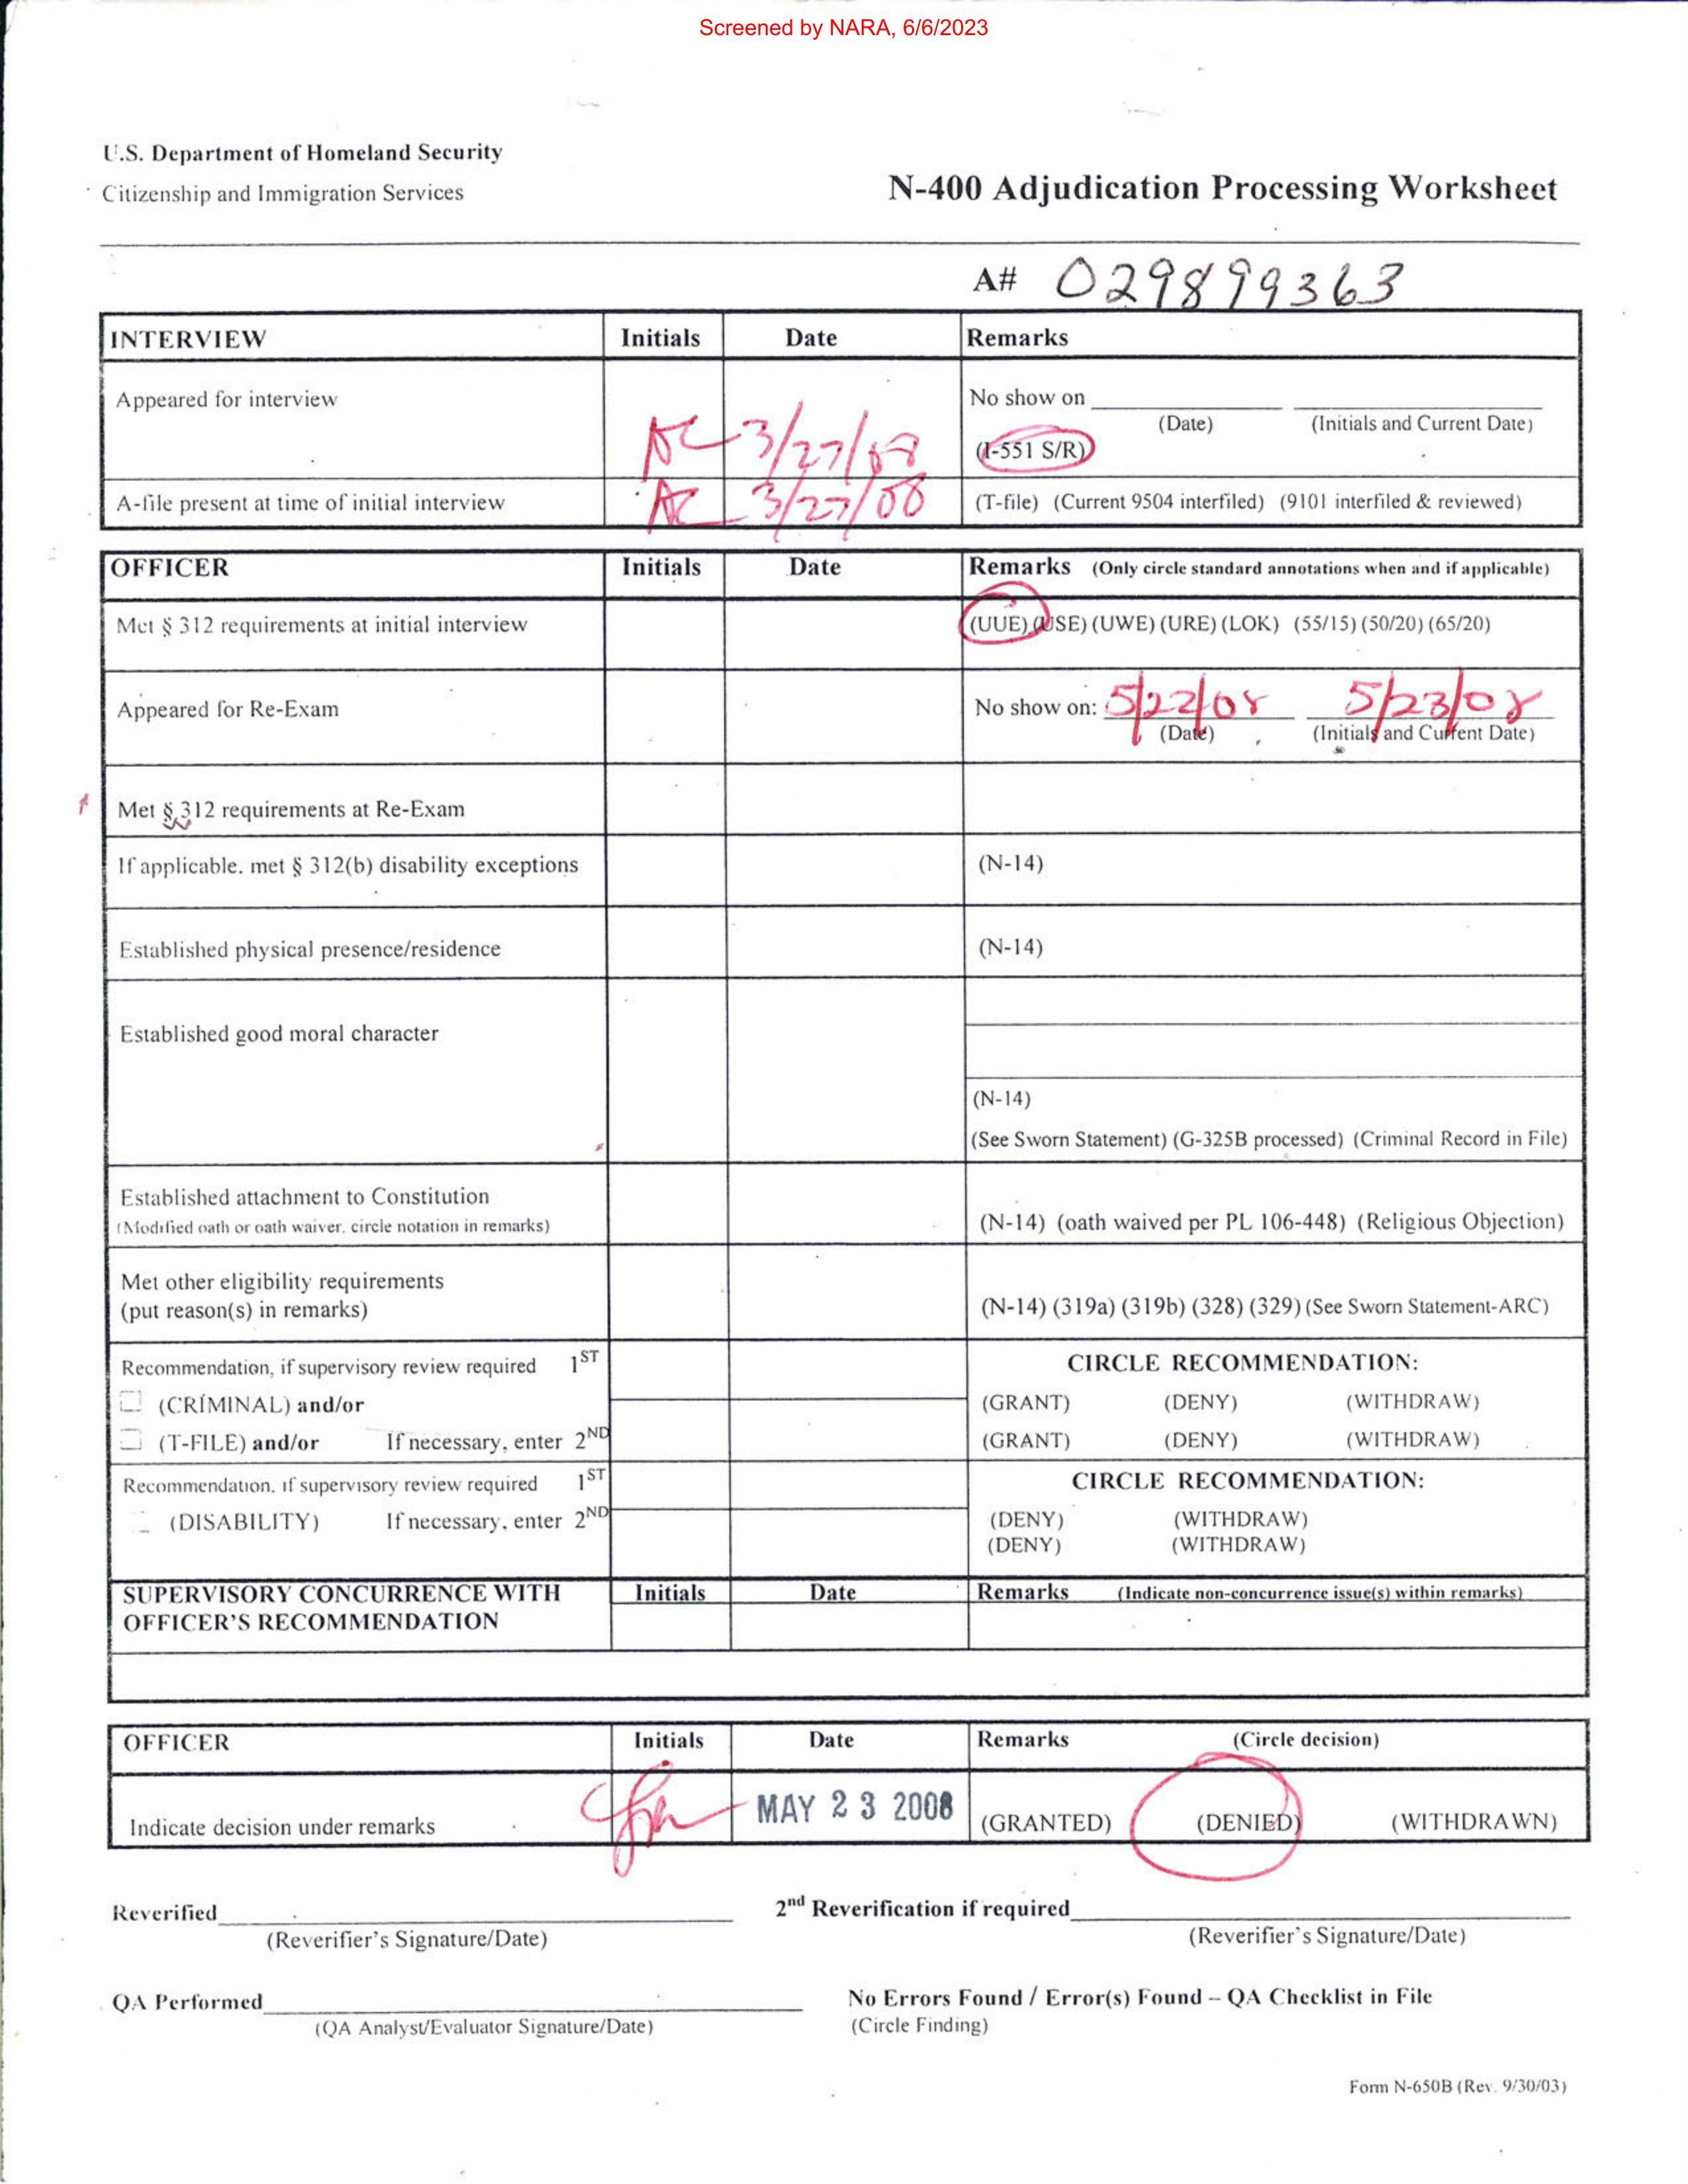 Screened by NARA, 6/6/2023
U.S. Department of Homeland Security
Citizenship and Immigration Services
N-400 Adjudication Processing Worksheet
A# 029899363
INTERVIEW Initials Date Remarks
Appeared for interview AC 3/27/08 No show on
(Date) (Initials and Current Date)
(I-551 S/R)
A-file present at time of initial interview AC 3/27/08 (T-file) (Current 9504 interfiled) (9101 interfiled & reviewed)
OFFICER Initials Date Remarks (Only circle standard annotations when and if applicable)
Met § 312 requirements at initial interview (UUE) (USE) (UWE) (URE) (LOK) (55/15) (50/20) (65/20)
Appeared for Re-Exam No show on: 5/22/08 5/23/08
(Date) (Initials and Current Date)
Met § 312 requirements at Re-Exam
If applicable, met § 312(b) disability exceptions (N-14)
Established physical presence/residence (N-14)
Established good moral character
(N-14)
(See Sworn Statement) (G-325B processed) (Criminal Record in File)
Established attachment to Constitution
(Modified oath or oath waiver, circle notation in remarks) (N-14) (oath waived per PL 106-448) (Religious Objection)
Met other eligibility requirements
(put reason(s) in remarks) (N-14) (319a) (319b) (328) (329) (See Sworn Statement-ARC)
Recommendation, if supervisory review required 1ST CIRCLE RECOMMENDATION:
(CRIMINAL) and/or (GRANT) (DENY) (WITHDRAW)
(T-FILE) and/or If necessary, enter 2ND (GRANT) (DENY) (WITHDRAW)
Recommendation, if supervisory review required 1ST CIRCLE RECOMMENDATION:
(DISABILITY) If necessary, enter 2ND (DENY) (WITHDRAW)
(DENY) (WITHDRAW)
SUPERVISORY CONCURRENCE WITH Initials Date Remarks (Indicate non-concurrence issue(s) within remarks)
OFFICER'S RECOMMENDATION
OFFICER Initials Date Remarks (Circle decision)
Indicate decision under remarks MAY 23 2008 (GRANTED) (DENIED) (WITHDRAWN)
Reverified 2nd Reverification if required
(Reverifier's Signature/Date) (Reverifier's Signature/Date)
QA Performed No Errors Found / Error(s) Found – QA Checklist in File
(QA Analyst/Evaluator Signature/Date) (Circle Finding)
Form N-650B (Rev. 9/30/03)